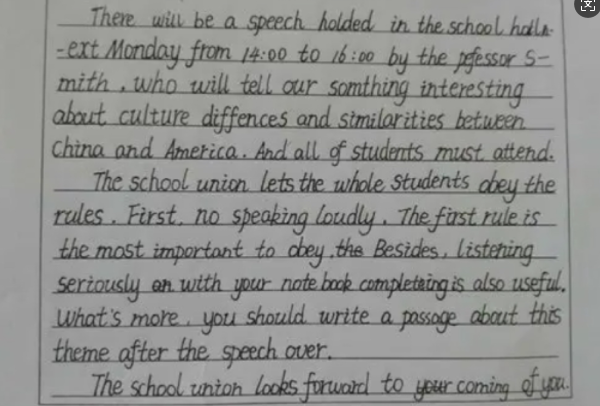 There will be a speech holded in the school halln-
-ext Monday from 14:00 to 16:00 by the pfessor S-
mith, who will tell our somthing interesting
about culture diffences and similarities between
China and America. And all of students must attend.
The school union lets the whole students obey the
rules. First, no speaking loudly. The first rule is
the most important to obey. the Besides, listening
seriously on with your note book completeing is also useful.
What's more, you should write a passage about this
theme after the speech over.
The school union looks forward to your coming of you.